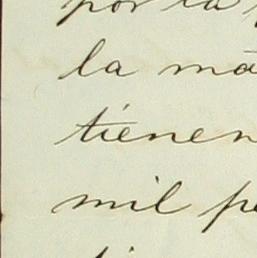 por la
la ma
tienen
mil pe